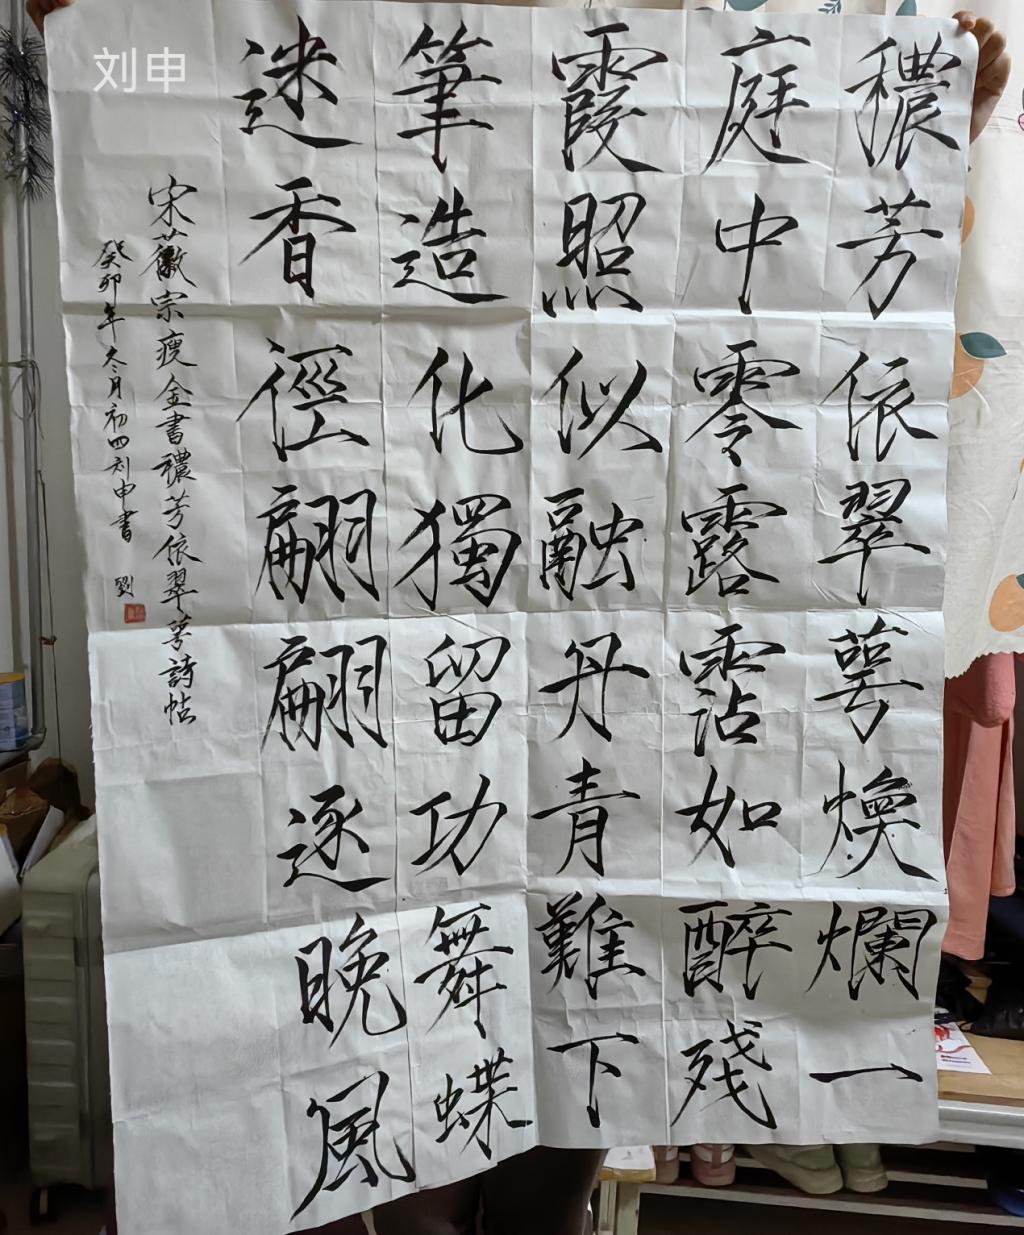 刘申
穠芳依翠萼煥爛一
庭中零露霑如醉残
霞照似融丹青難下
筆造化獨留功舞蝶
迷香徑翩翩逐晚風
宋徽宗瘦金書穠芳依翠萼詩帖
癸卯年冬月初四刘申書
劉